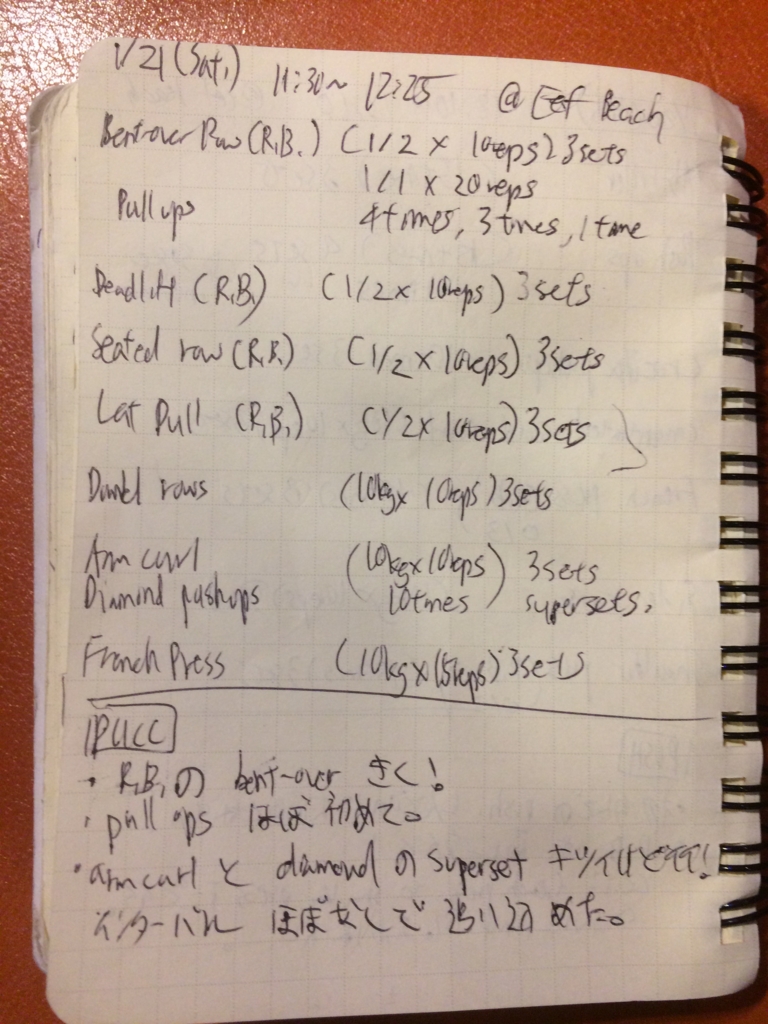 1/21 (Sat.) 11:30~ 12:25 @ Eef Beach
Bent-over Row (R.B.) (1/2 × 10reps) 3sets
1/1 × 20reps
Pull ups 4times, 3times, 1time
Deadlift (R.B.) (1/2 × 10reps) 3sets
Seated row (R.B.) (1/2 × 10reps) 3sets
Lat Pull (R.B.) (1/2 × 10reps) 3sets
rows (10kg × 10reps) 3sets
Arm curl (10kg × 10reps) 3sets
Diamond pushups 10times supersets.
French Press (10kg × 15reps) 3sets
・R.B.の bent-over きく!
・pull ups ほぼ初めて。
・arm curl と diamond の superset キツイけど
インターバル ほぼなしで 追い込めた。